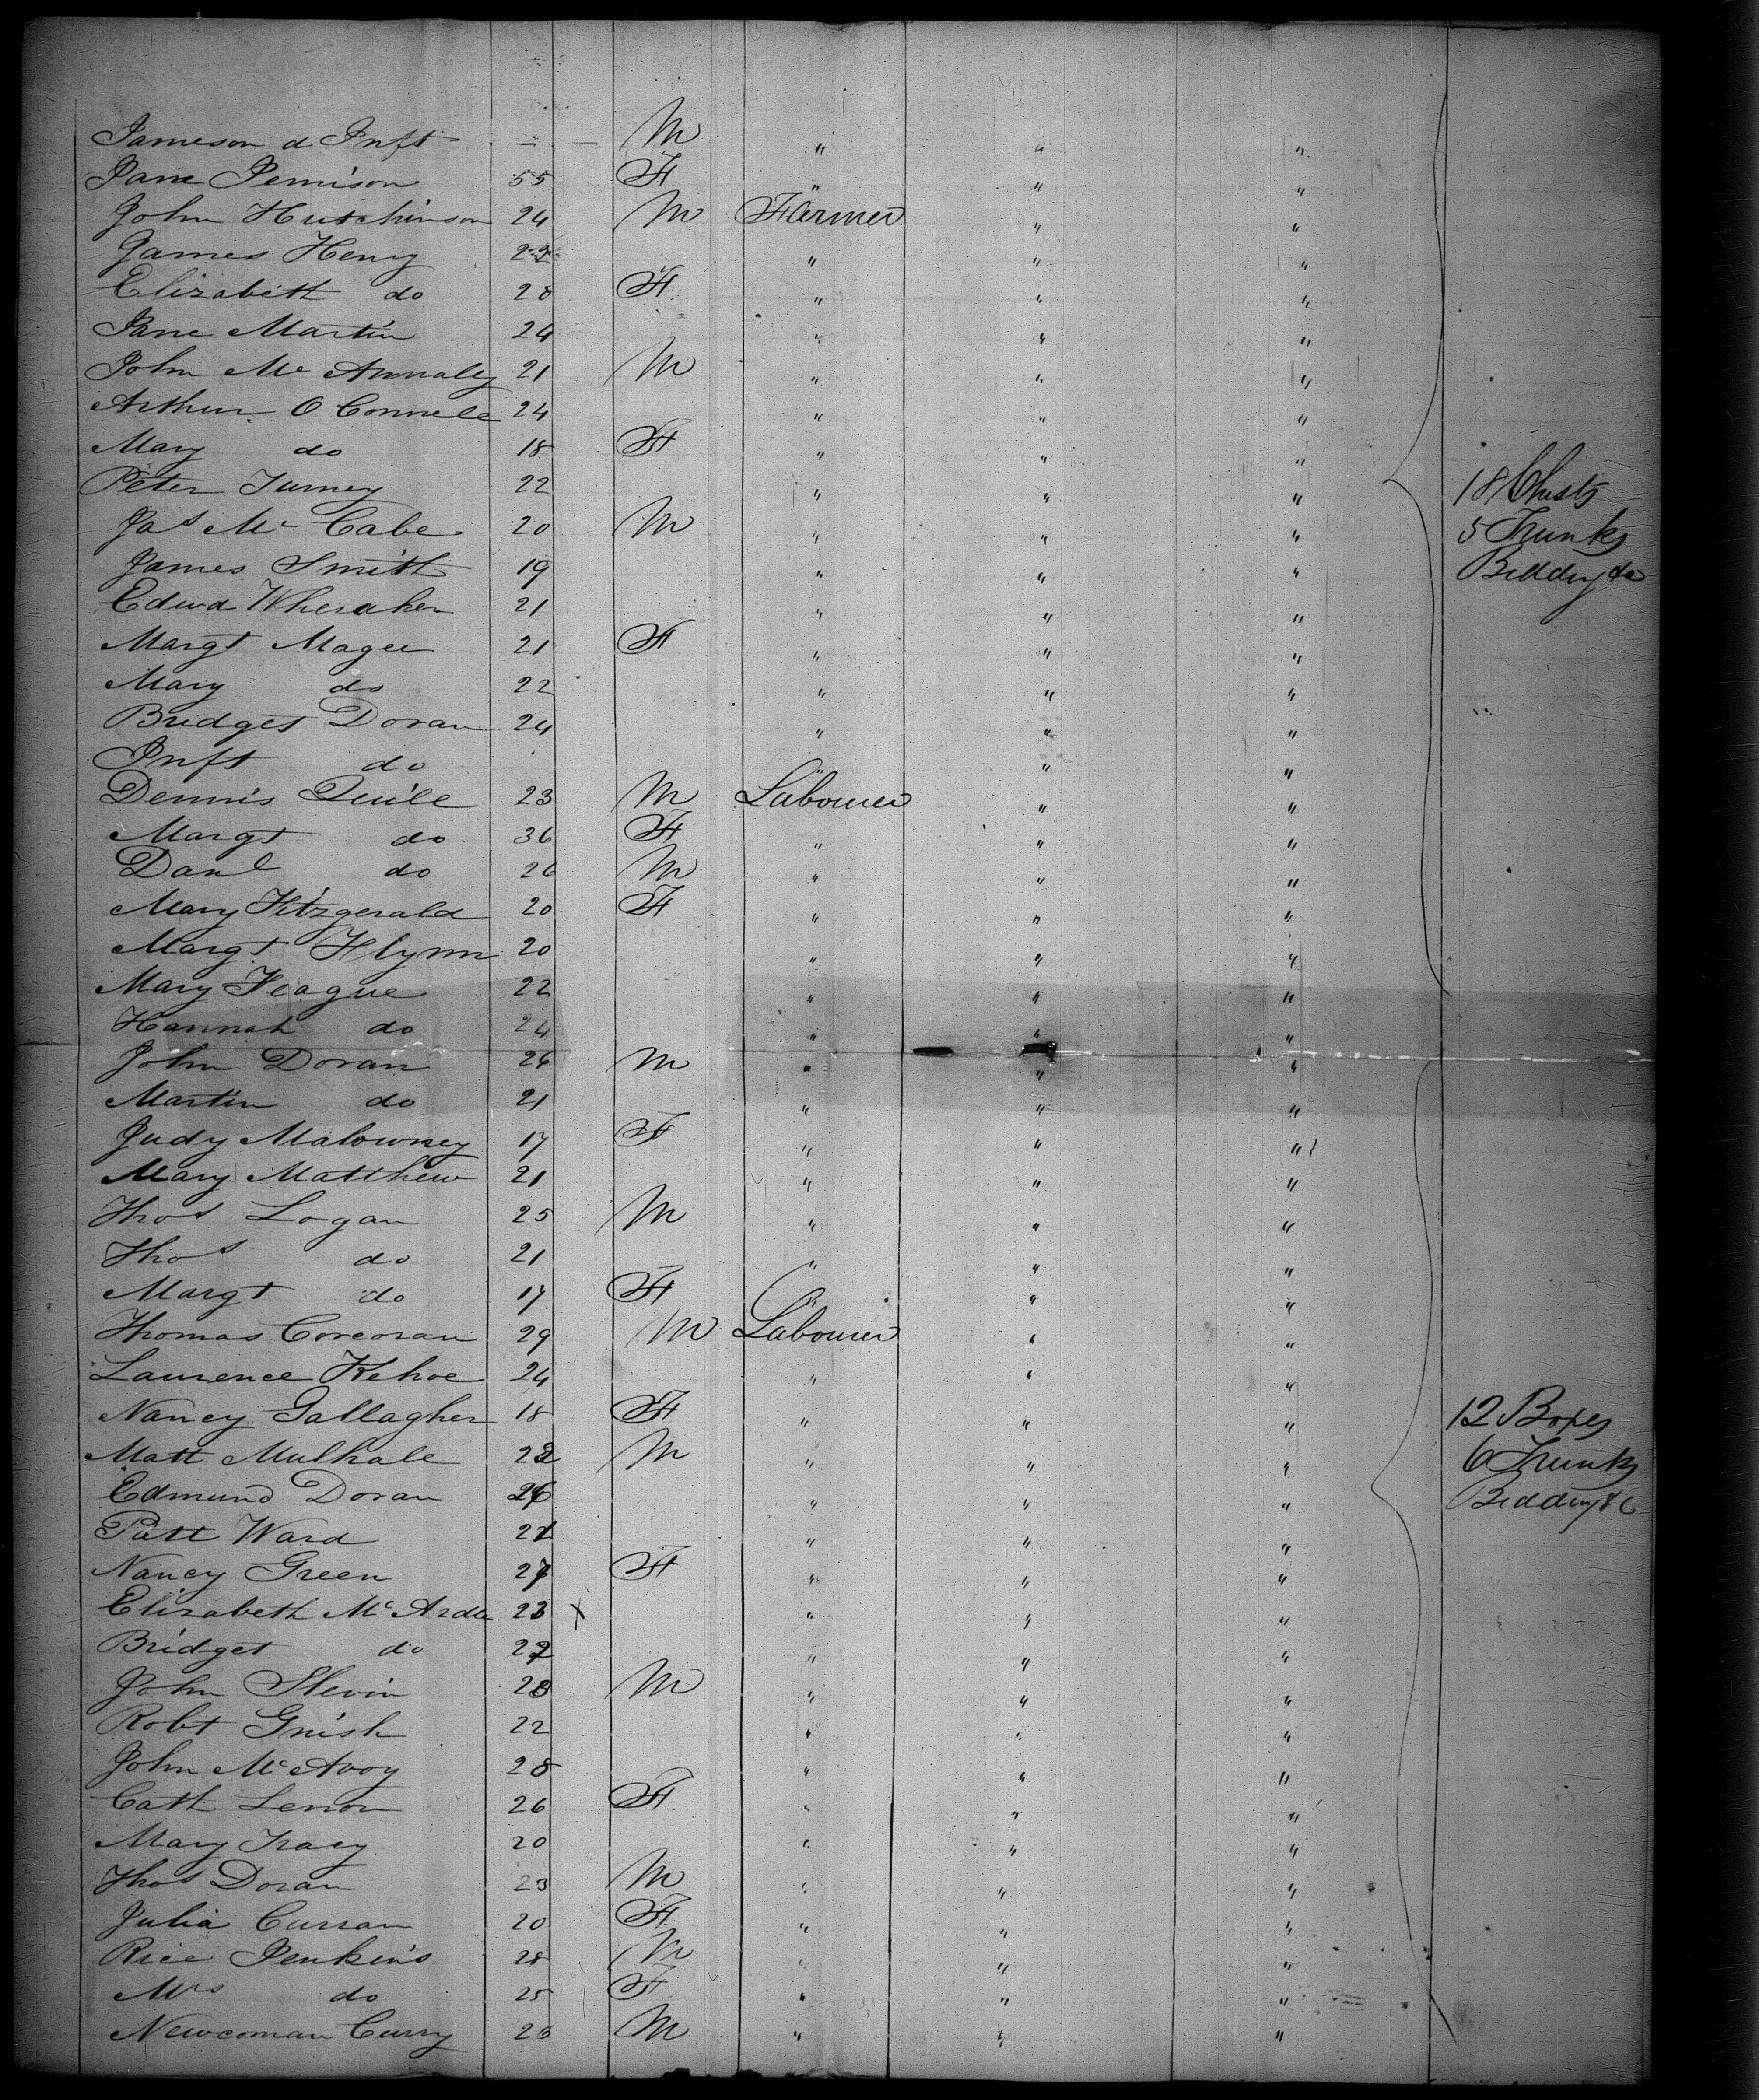 Jameson d Inft — — M " " "
Jane Jemison 55 F " " "
John Hutchinson 24 M Farmer " "
James Henry 22 " " "
Elizabeth do 28 F " " "
Jane Martin 24 " " "
John Mc Annally 21 M " " "
Arthur O Connell 24 " " "
Mary do 18 F " " "
Peter Turney 22 " " " 18 Chests
Jas Mc Cabe 20 M " " " 5 Trunks
James Smith 19 " " " Bedding &c
Edwd 21 " " "
Margt Magee 21 F " " "
Mary do 22 " " "
Bridget Doran 24 " " "
Inft do " " "
Dennis Quile 23 M Labourer " "
Margt do 36 F " " "
Danl do 26 M " " "
Mary Fitzgerald 20 F " " "
Margt Flynn 20 " " "
Mary Feague 22 " " "
Hannah do 24 " " "
John Doran 26 M " " "
Martin do 21 " " "
Judy Malowney 17 F " " "
Mary Matthew 21 " " "
Thos Logan 25 M " " "
Thos do 21 " " "
Margt do 17 F " " "
Thomas Corcoran 29 M Labourer " "
Laurence Kehoe 24 " " "
Nancy Gallagher 18 F " " " 12 Boxes
Matt Mulhale 22 M " " " 6 Trunks
Edmund Doran 26 " " " Bedding &c
Patt Ward 21 " " "
Nancy Green 27 F " " "
Elizabeth Mc Ardle 23 x " " "
Bridget do 22 " " "
John Slevin 28 M " " "
Robt 22 " " "
John McAvoy 28 " " "
Cath Lenon 26 F " " "
Mary Tracy 20 " " "
Thos Doran 23 M " " "
Julia Curran 20 F " " "
Rice Jenkins 28 M " " "
Mrs do 25 F " " "
Newcoman Curry 25 M " " "